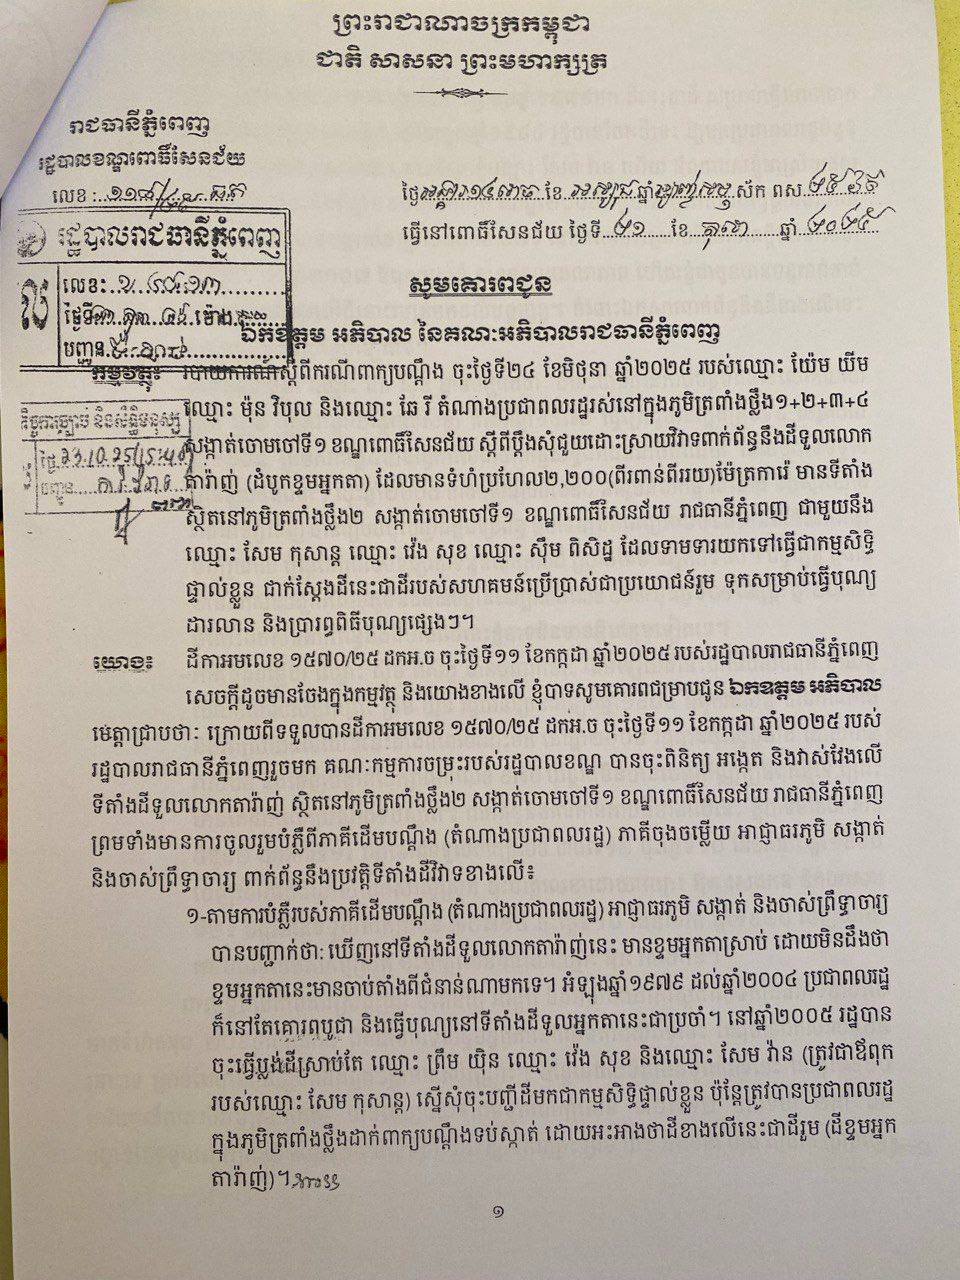 ព្រះរាជាណាចក្រកម្ពុជា
ជាតិ សាសនា ព្រះមហាក្សត្រ
រាជធានីភ្នំពេញ
រដ្ឋបាលខណ្ឌពោធិ៍សែនជ័យ
លេខ :
ថ្ងៃអង្គារ ១៤រោច ខែ អស្សុជ ឆ្នាំម្សាញ់ សប្តស័ក ពស ២៥៦៩
ធ្វើនៅពោធិ៍សែនជ័យ ថ្ងៃទី ២១ ខែ តុលា ឆ្នាំ ២០២៥
រដ្ឋបាលរាជធានីភ្នំពេញ
លេខៈ
ថ្ងៃទី ម៉ោង
បញ្ជូន
សូមគោរពជូន
ឯកឧត្តម អភិបាល នៃគណៈអភិបាលរាជធានីភ្នំពេញ
កម្មវត្ថុៈ របាយការណ៍ស្តីពីករណីពាក្យបណ្តឹង ចុះថ្ងៃទី២៤ ខែមិថុនា ឆ្នាំ២០២៥ របស់ឈ្មោះ យ៉ែម យីម
ឈ្មោះ ម៉ុន វិបុល និងឈ្មោះ ឆែ រី តំណាងប្រជាពលរដ្ឋរស់នៅក្នុងភូមិត្រពាំងថ្លឹង១+២+៣+៤
សង្កាត់ចោមចៅទី១ ខណ្ឌពោធិ៍សែនជ័យ ស្តីពីប្តឹងសុំជួយដោះស្រាយវិវាទពាក់ព័ន្ធនឹងដីទួលលោក
តារ៉ាញ់ (ដំបូកខ្ទមអ្នកតា) ដែលមានទំហំប្រហែល២,២០០(ពីរពាន់ពីររយ)ម៉ែត្រការ៉េ មានទីតាំង
ស្ថិតនៅភូមិត្រពាំងថ្លឹង២ សង្កាត់ចោមចៅទី១ ខណ្ឌពោធិ៍សែនជ័យ រាជធានីភ្នំពេញ ជាមួយនឹង
ឈ្មោះ សែម កុសាន្ត ឈ្មោះ វ៉េង សុខ ឈ្មោះ ស៊ឹម ពិសិដ្ឋ ដែលទាមទារយកទៅធ្វើជាកម្មសិទ្ធិ
ផ្ទាល់ខ្លួន ជាក់ស្តែងដីនេះជាដីរបស់សហគមន៍ប្រើប្រាស់ជាប្រយោជន៍រួម ទុកសម្រាប់ធ្វើបុណ្យ
ដារលាន និងប្រារព្ធពិធីបុណ្យផ្សេងៗ។
23.10.25
យោងៈ ដីកាអមលេខ ១៥៧០/២៥ ដកអ.ច ចុះថ្ងៃទី១១ ខែកក្កដា ឆ្នាំ២០២៥ របស់រដ្ឋបាលរាជធានីភ្នំពេញ
សេចក្តីដូចមានចែងក្នុងកម្មវត្ថុ និងយោងខាងលើ ខ្ញុំបាទសូមគោរពជម្រាបជូន ឯកឧត្តម អភិបាល
មេត្តាជ្រាបថាៈ ក្រោយពីទទួលបានដីកាអមលេខ ១៥៧០/២៥ ដកអ.ច ចុះថ្ងៃទី១១ ខែកក្កដា ឆ្នាំ២០២៥ របស់
រដ្ឋបាលរាជធានីភ្នំពេញរួចមក គណៈកម្មការចម្រុះរបស់រដ្ឋបាលខណ្ឌ បានចុះពិនិត្យ អង្កេត និងវាស់វែងលើ
ទីតាំងដីទួលលោកតារ៉ាញ់ ស្ថិតនៅភូមិត្រពាំងថ្លឹង២ សង្កាត់ចោមចៅទី១ ខណ្ឌពោធិ៍សែនជ័យ រាជធានីភ្នំពេញ
ព្រមទាំងមានការចូលរួមបំភ្លឺពីភាគីដើមបណ្តឹង (តំណាងប្រជាពលរដ្ឋ) ភាគីចុងចម្លើយ អាជ្ញាធរភូមិ សង្កាត់
និងចាស់ព្រឹទ្ធាចារ្យ ពាក់ព័ន្ធនឹងប្រវត្តិទីតាំងដីវិវាទខាងលើ៖
១-តាមការបំភ្លឺរបស់ភាគីដើមបណ្តឹង (តំណាងប្រជាពលរដ្ឋ) អាជ្ញាធរភូមិ សង្កាត់ និងចាស់ព្រឹទ្ធាចារ្យ
បានបញ្ជាក់ថា: ឃើញនៅទីតាំងដីទួលលោកតារ៉ាញ់នេះ មានខ្ទមអ្នកតាស្រាប់ ដោយមិនដឹងថា
ខ្ទមអ្នកតានេះមានចាប់តាំងពីជំនាន់ណាមកទេ។ អំឡុងឆ្នាំ១៩៧៩ ដល់ឆ្នាំ២០០៤ ប្រជាពលរដ្ឋ
ក៏នៅតែគោរពបូជា និងធ្វើបុណ្យនៅទីតាំងដីទួលអ្នកតានេះជាប្រចាំ។ នៅឆ្នាំ២០០៥ រដ្ឋបាន
ចុះធ្វើប្លង់ដីស្រាប់តែ ឈ្មោះ ព្រឹម យ៉ិន ឈ្មោះ វ៉េង សុខ និងឈ្មោះ សែម វ៉ាន (ត្រូវជាឪពុក
របស់ឈ្មោះ សែម កុសាន្ត) ស្នើសុំចុះបញ្ជីដីមកជាកម្មសិទ្ធិផ្ទាល់ខ្លួន ប៉ុន្តែត្រូវបានប្រជាពលរដ្ឋ
ក្នុងភូមិត្រពាំងថ្លឹងដាក់ពាក្យបណ្តឹងទប់ស្កាត់ ដោយអះអាងថាដីខាងលើនេះជាដីរួម (ដីខ្ទមអ្នក
តារ៉ាញ់)។
១